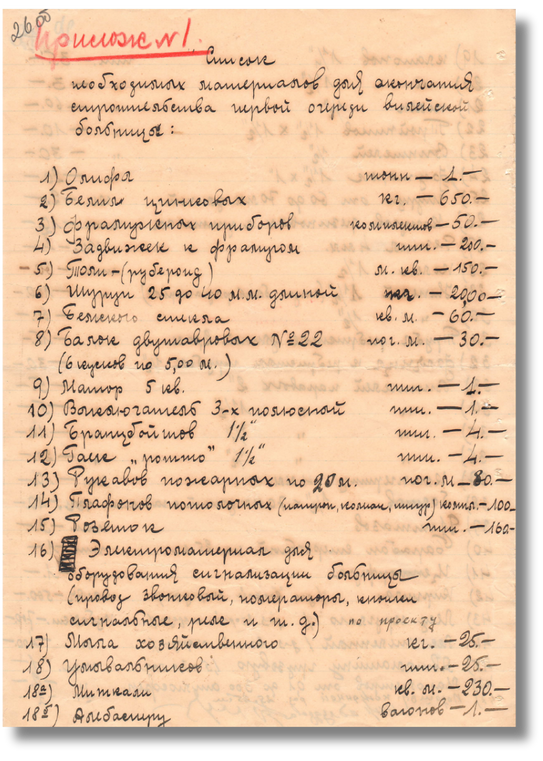 26 об
Прилож №1.
Список
необходимых материалов для окончания
строительства первой очереди вилейской
больницы:
1) Олифы тонн — 1.—
2) Белил цинковых кг. — 650.—
3) Фрамужных приборов комплектов — 50.—
4) Задвижек к фрамугом шт. — 200.—
5) Толи — (рубероид) м. кв. — 150.—
6) Шуруп 25 до 40 м.м. длиной кг. — 20,00 —
7) Бемского стекла кв. м. — 60.—
8) Балок двутавровых №22 пог. м. — 30.—
(6 кусков по 5,00 м.)
9) Матор 5 кв. шт. — 1.—
10) Выключатель 3-х полюсный шт. — 1.—
11) Бранцбойтов 1½" шт. — 4.—
12) Гаек „ротто" 1½" шт. — 4.—
13) Рукавов пожарных по 20 м. пог. м. — 80.—
14) Плафонов потолочных (патрон, колпак, шнур) компл. — 100—
15) Розеток шт. — 160—
16) Электроматериал для
оборудования сигнализации больницы
(провод звонковый, номераторы, кнопки
сигнальные, реле и т. д.) по проекту
17) Мыла хозяйственного кг. — 25.—
18) Умывальников шт. — 25.—
18а) Миткали кв. м. — 230.—
18б) Алебастру вагонов — 1.—